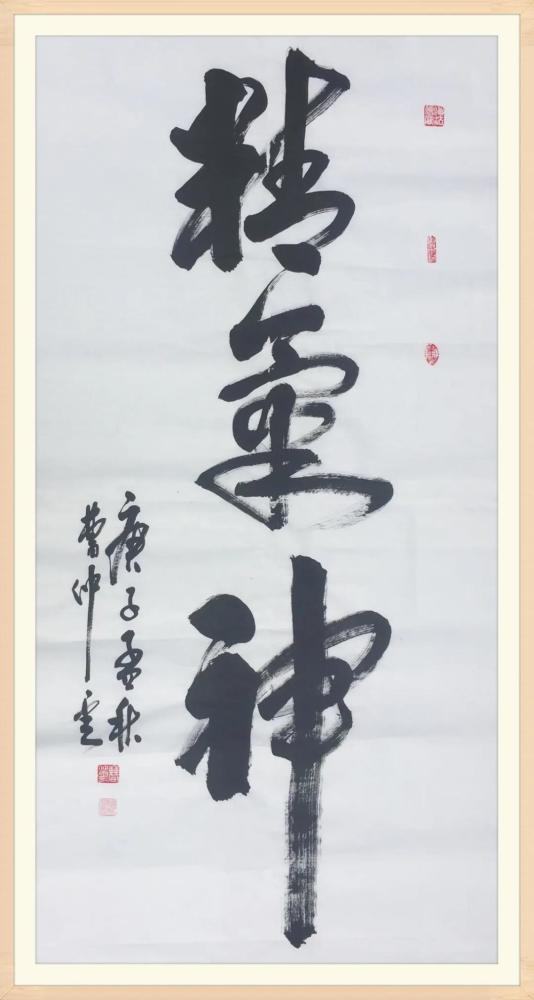 精氣神
庚子孟秋
曹仲雲